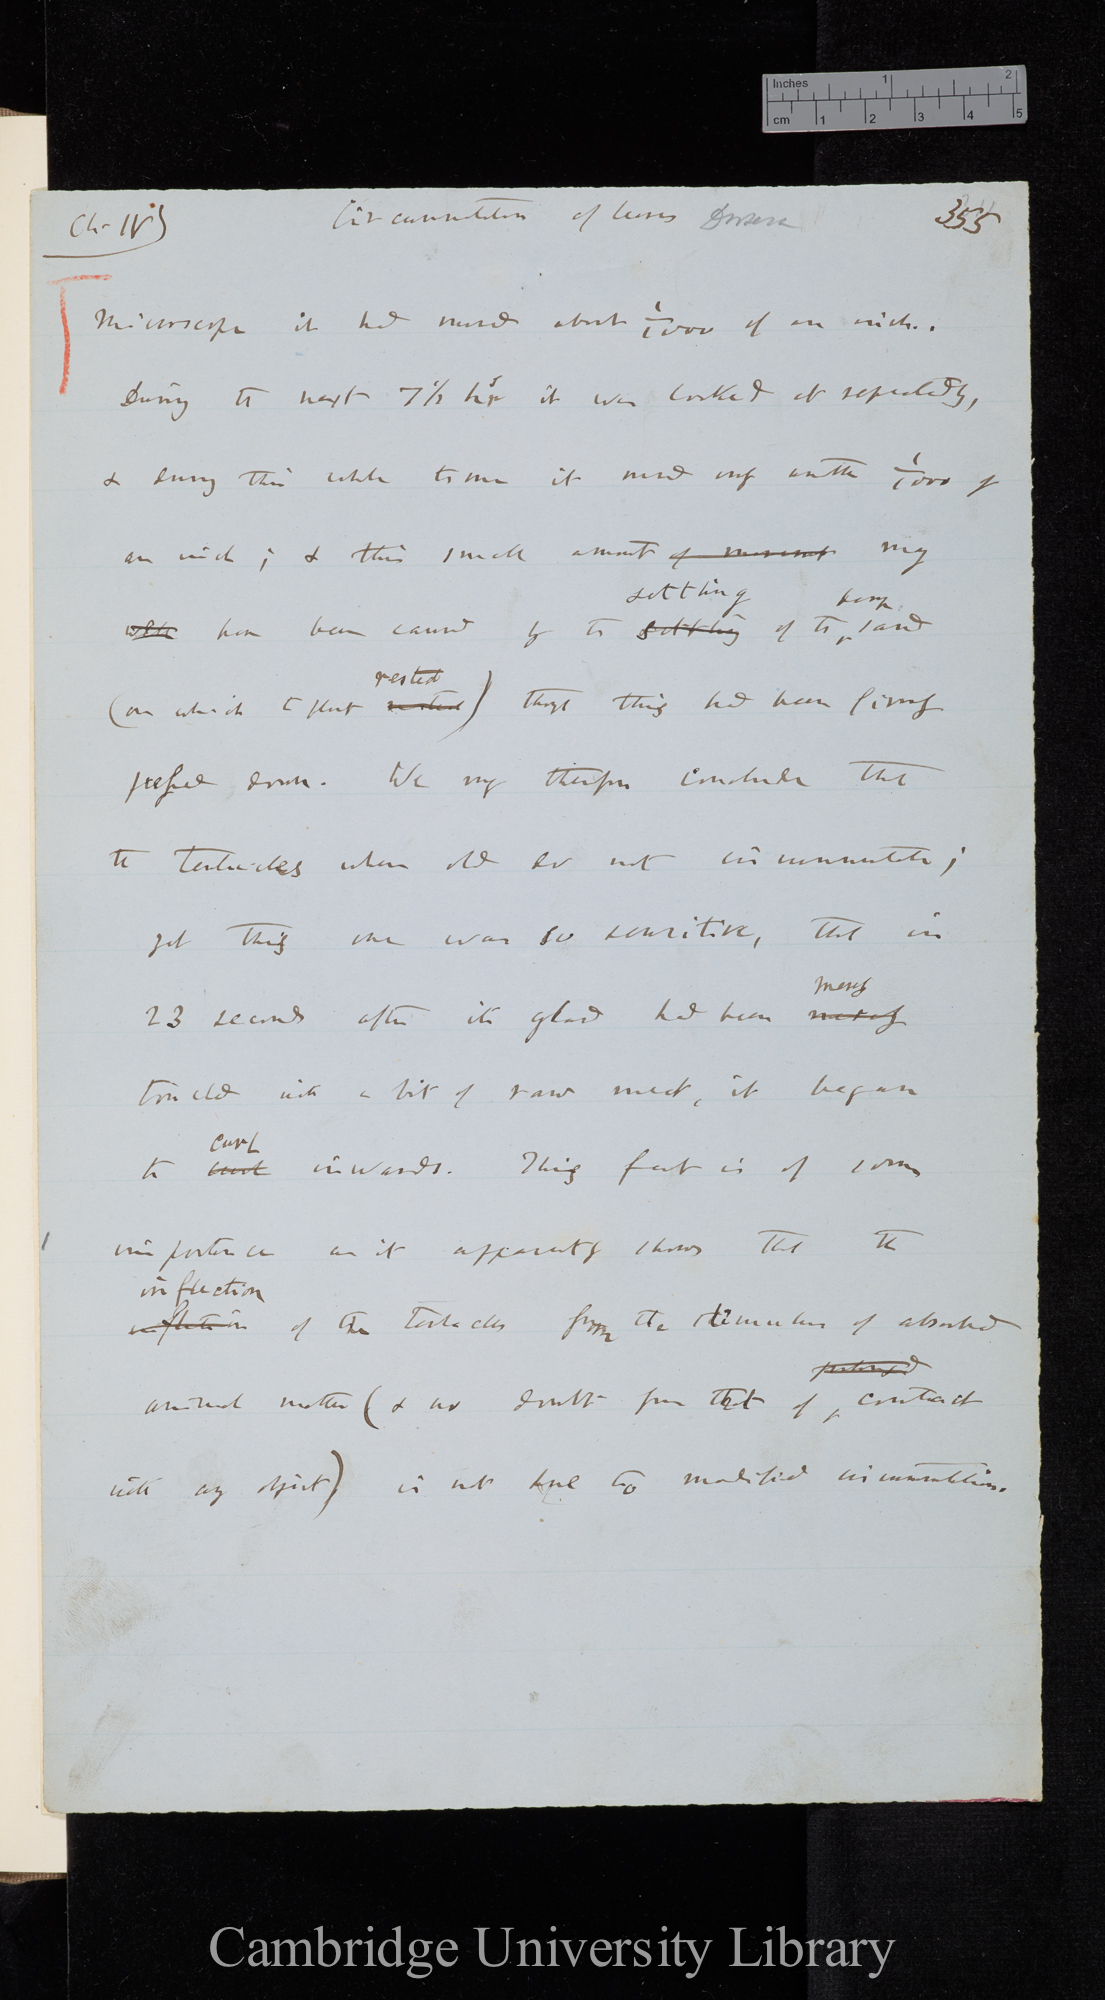 Inches 1 2
cm 1 2 3 4 5
Ch. IV) Circumnutation of leaves Drosera 355
Microscope it had moved about 1/1000 of an inch.
During the next 7 1/2 hrs it was looked at repeatedly,
& during this whole time it moved only another 1/1000 of
an inch; & this small amount of movement may
settling damp
have been caused by the settling of the sand
rested
(on which the plant rested) though this had been firmly
pressed down. We may therefore conclude that
the tentacles when old do not circumnutate;
yet this one was so sensitive, that in
merely
23 seconds after its gland had been merely
touched with a bit of raw meat, it began
curl
to curl inwards. This fact is of some
importance as it apparently shows that the
inflection
inflection of the tentacles from the stimulus of absorbed
prolonged
animal matter (& no doubt from that of contact
with any object) is not due to modified circumnutation.
Cambridge University Library